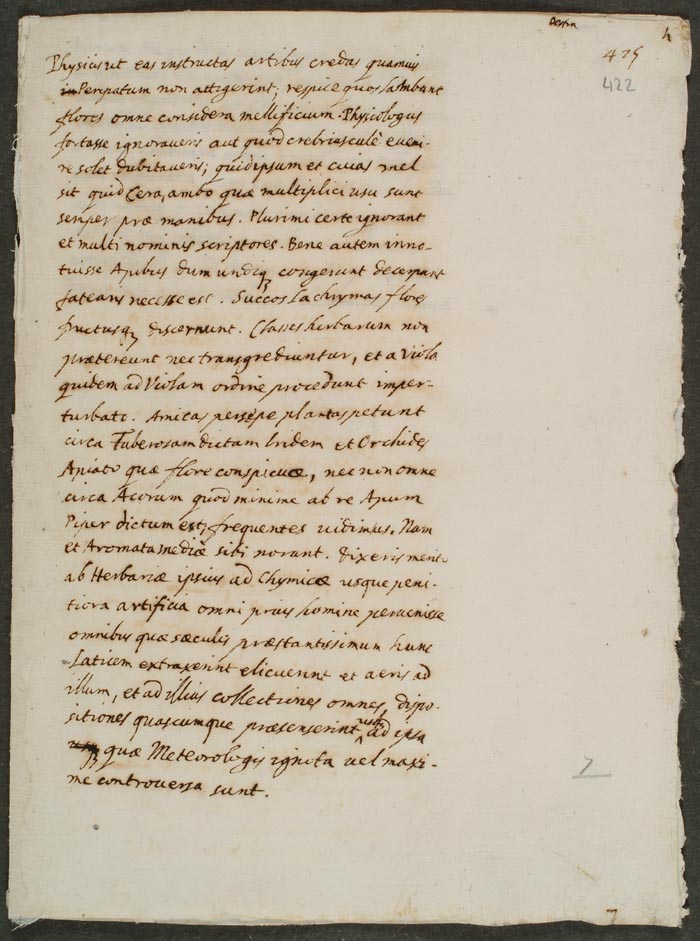 h
425
422
Physicis ut eas instructas artibus credas quamvis
Peripatum non attigerint; respice quos lambunt
flores omne considera mellificium. Physiologus
fortasse ignoraveris aut quod crebriusculè eveni-
re solet dubitaveris; quid ipsum et cuias mel
sit quid Cera, ambo quæ multiplici usu sunt
semper præ manibus. Plurimi certe ignorant
et multi nominis scriptores. Bene autem inno-
tuisse Apibus dum undiq; congerunt decerpant
fatearis necesse est. Succos Lachrymas flores
fructusq; discernunt. Classes herbarum non
prætereunt nec transgrediuntur, et a Viola
quidem ad Violam ordine procedunt imper-
turbato. Amicas persepe plantas petunt
circa Tuberosam dictam Iridem et Orchides
Apiato quæ flore conspicuæ, nec non omne
circa Acorum quod minime ab re Apum
Piper dictum est; frequentes vidimus. Nam
et Aromata mediè sibi norunt. Dixeris
ab Herbariæ ipsius ad Chymicæ usque peni-
tiora artificia omni prius homine pervenisse
omnibus quæ sæculis præstantissimum hunc
Laticem extraxerint elicuerint et aeris ad
illum, et ad illius collectiones omnes, dispo-
sitiones quascumque præsenserint usq; ad ipsa
quæ Meteorologis ignota vel maxi-
me controversa sunt.
7